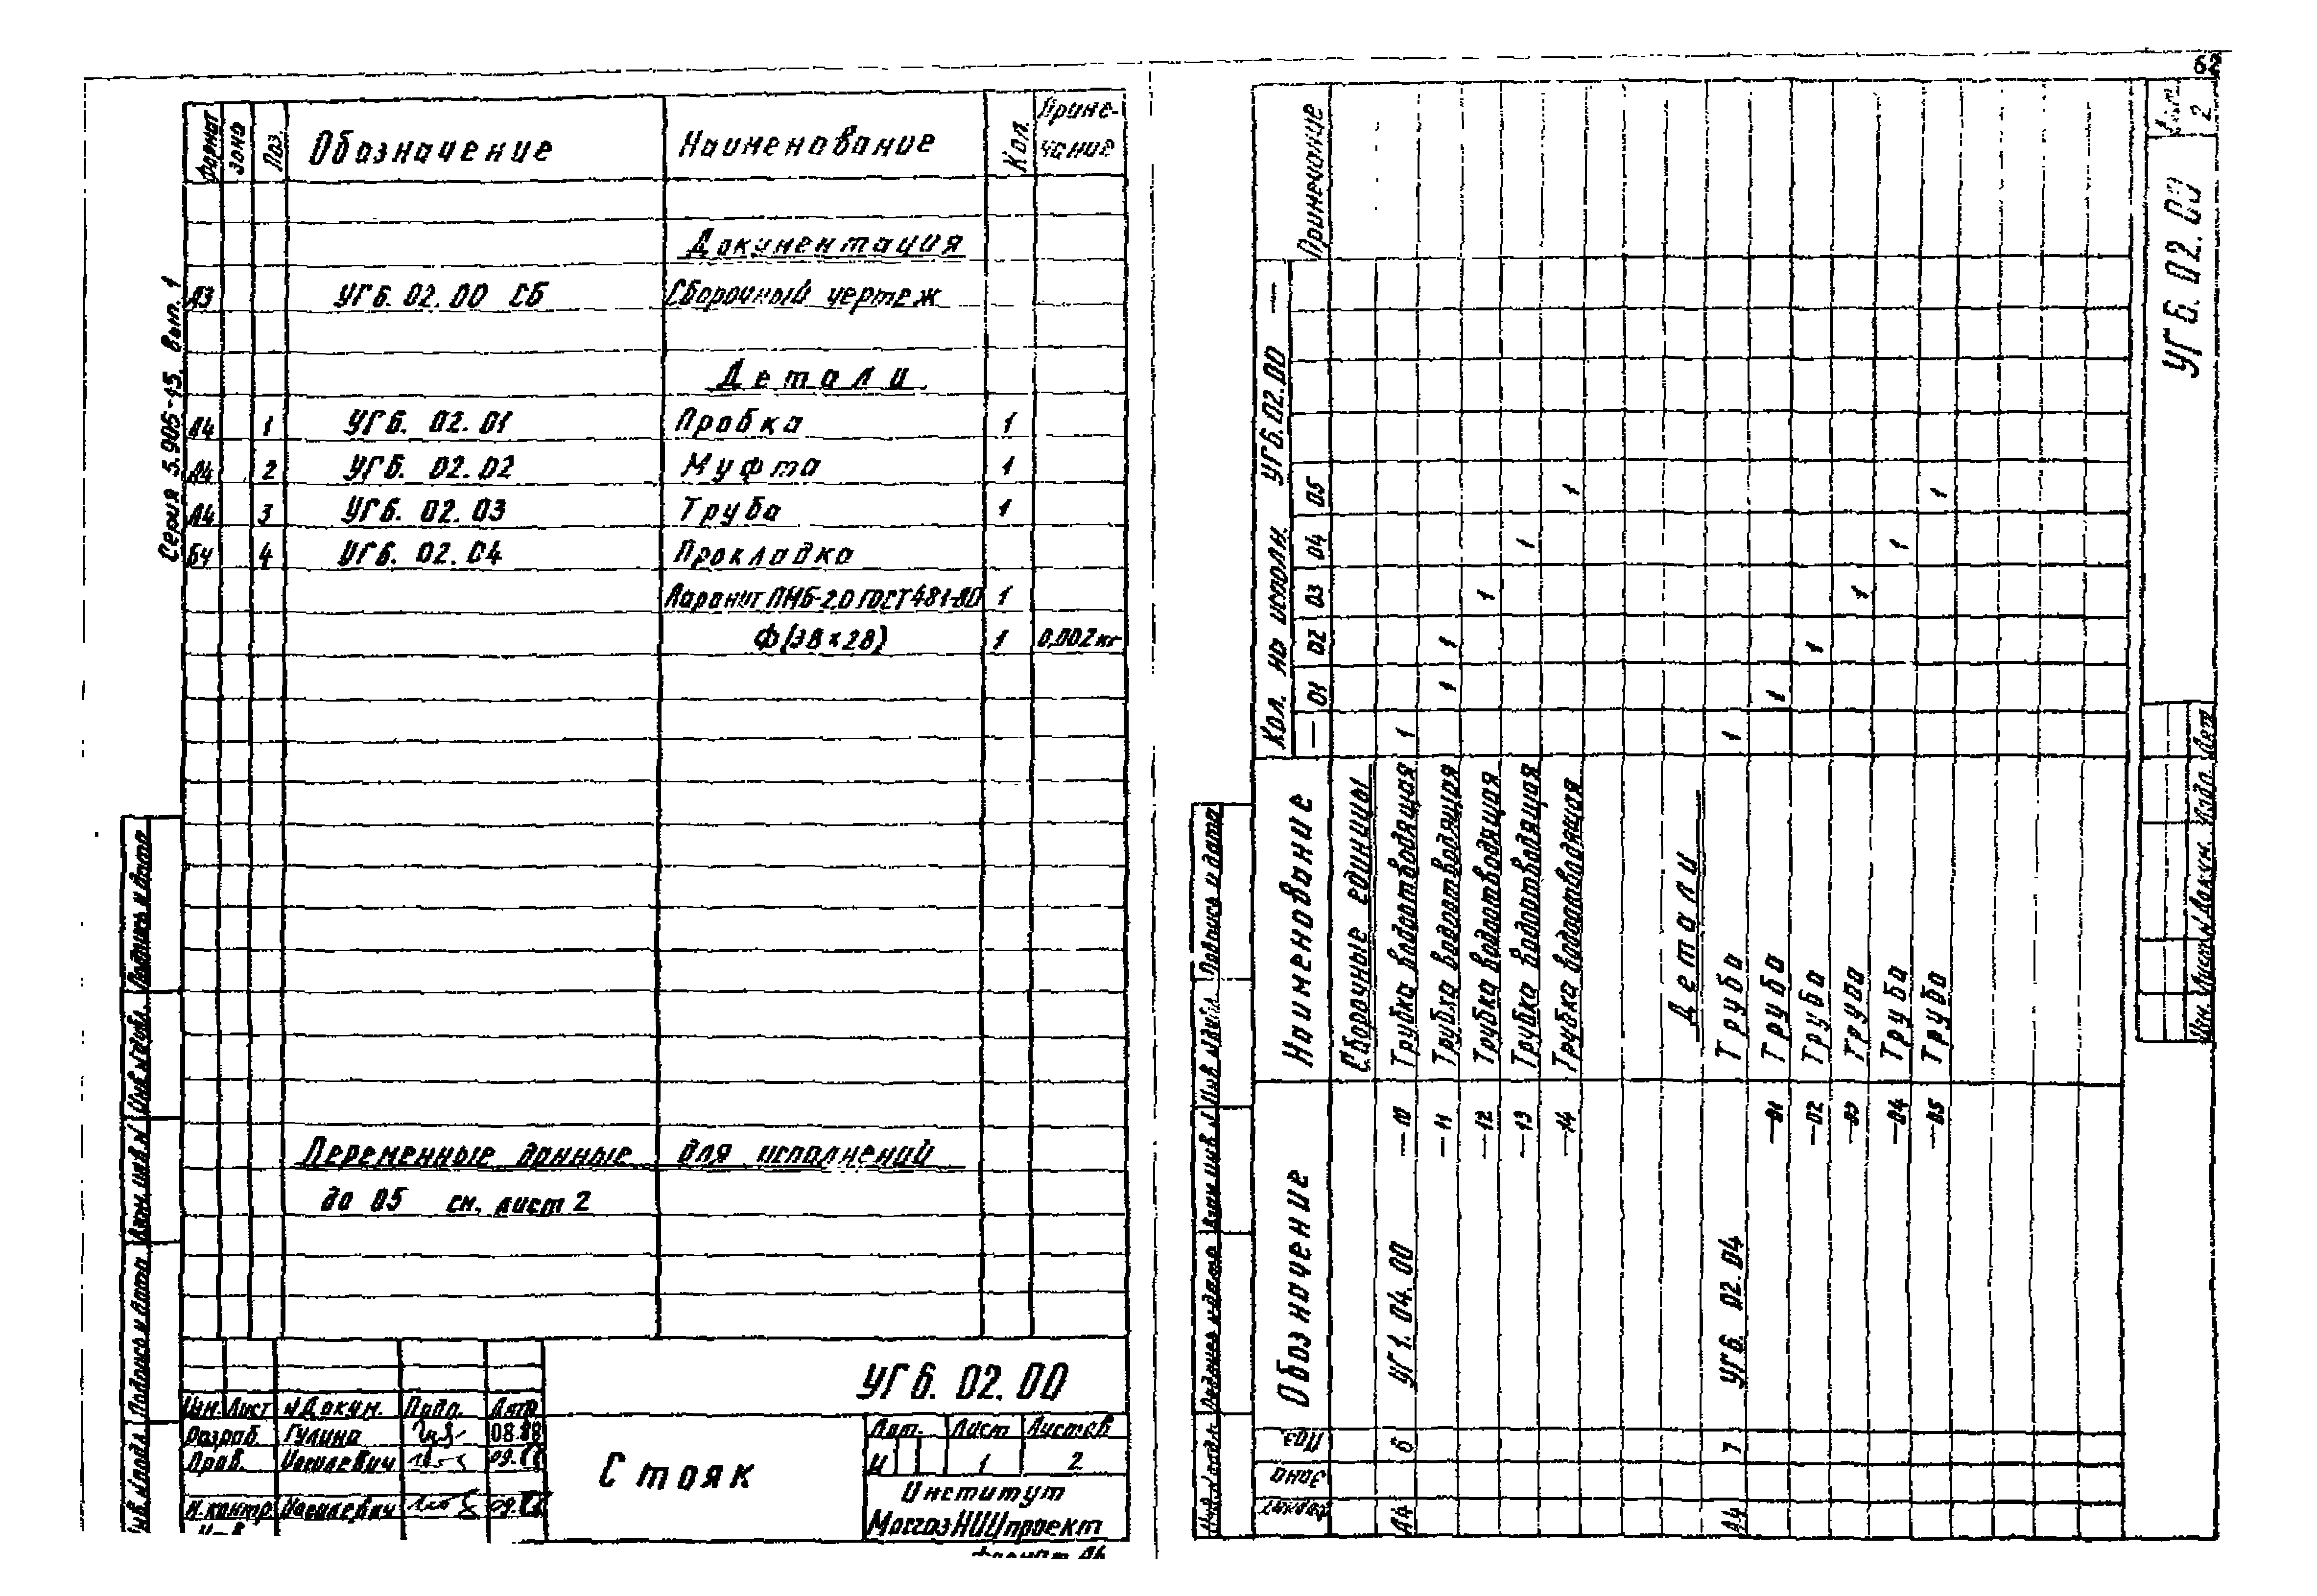 62
Серия 5.905-15. Вып. 1
Формат Зона Поз. Обозначение Наименование Кол. Приме-
чание
Документация
А3 УГ6. 02. 00 СБ Сборочный чертеж
Детали
А4 1 УГ6. 02. 01 Пробка 1
А4 2 УГ6. 02. 02 Муфта 1
А4 3 УГ6. 02. 03 Труба 1
БЧ 4 УГ6. 02. 04 Прокладка
Паронит ПМБ-2.0 ГОСТ 481-80 1
Ф(38×28) 1 0.002 кг
Переменные данные для исполнений
до 05 см. лист 2
Подпись и дата
Инв. N дубл.
Взам. инв. N
Подпись и дата
Инв. N подл.
УГ6. 02. 00
Изм. Лист N Докум. Подп. Дата
Разраб. Гулина 08.88
Пров. 09.88
Н.контр. 09.88
Утв.
Стояк
Лит. Лист Листов
И 1 2
Институт
МосгазНИИпроект
Формат
Формат Зона Поз. Обозначение Наименование Кол. на исполн. УГ6.02.00 — Примечание
— 01 02 03 04 05
Сборочные единицы
А4 6 УГ1. 04. 00 —10 Трубка водоотводящая 1
—11 Трубка водоотводящая 1 1
—12 Трубка водоотводящая 1
—13 Трубка водоотводящая 1
—14 Трубка водоотводящая 1
Детали
А4 7 УГ6. 02. 04 Труба 1
—01 Труба 1
—02 Труба 1
—03 Труба 1
—04 Труба 1
—05 Труба 1
Подпись и дата
Инв. N дубл.
Взам. инв. N
Подпись и дата
Инв. N подл.
Изм. Лист N Докум. Подп. Дата
УГ6. 02. 00
Лист
2